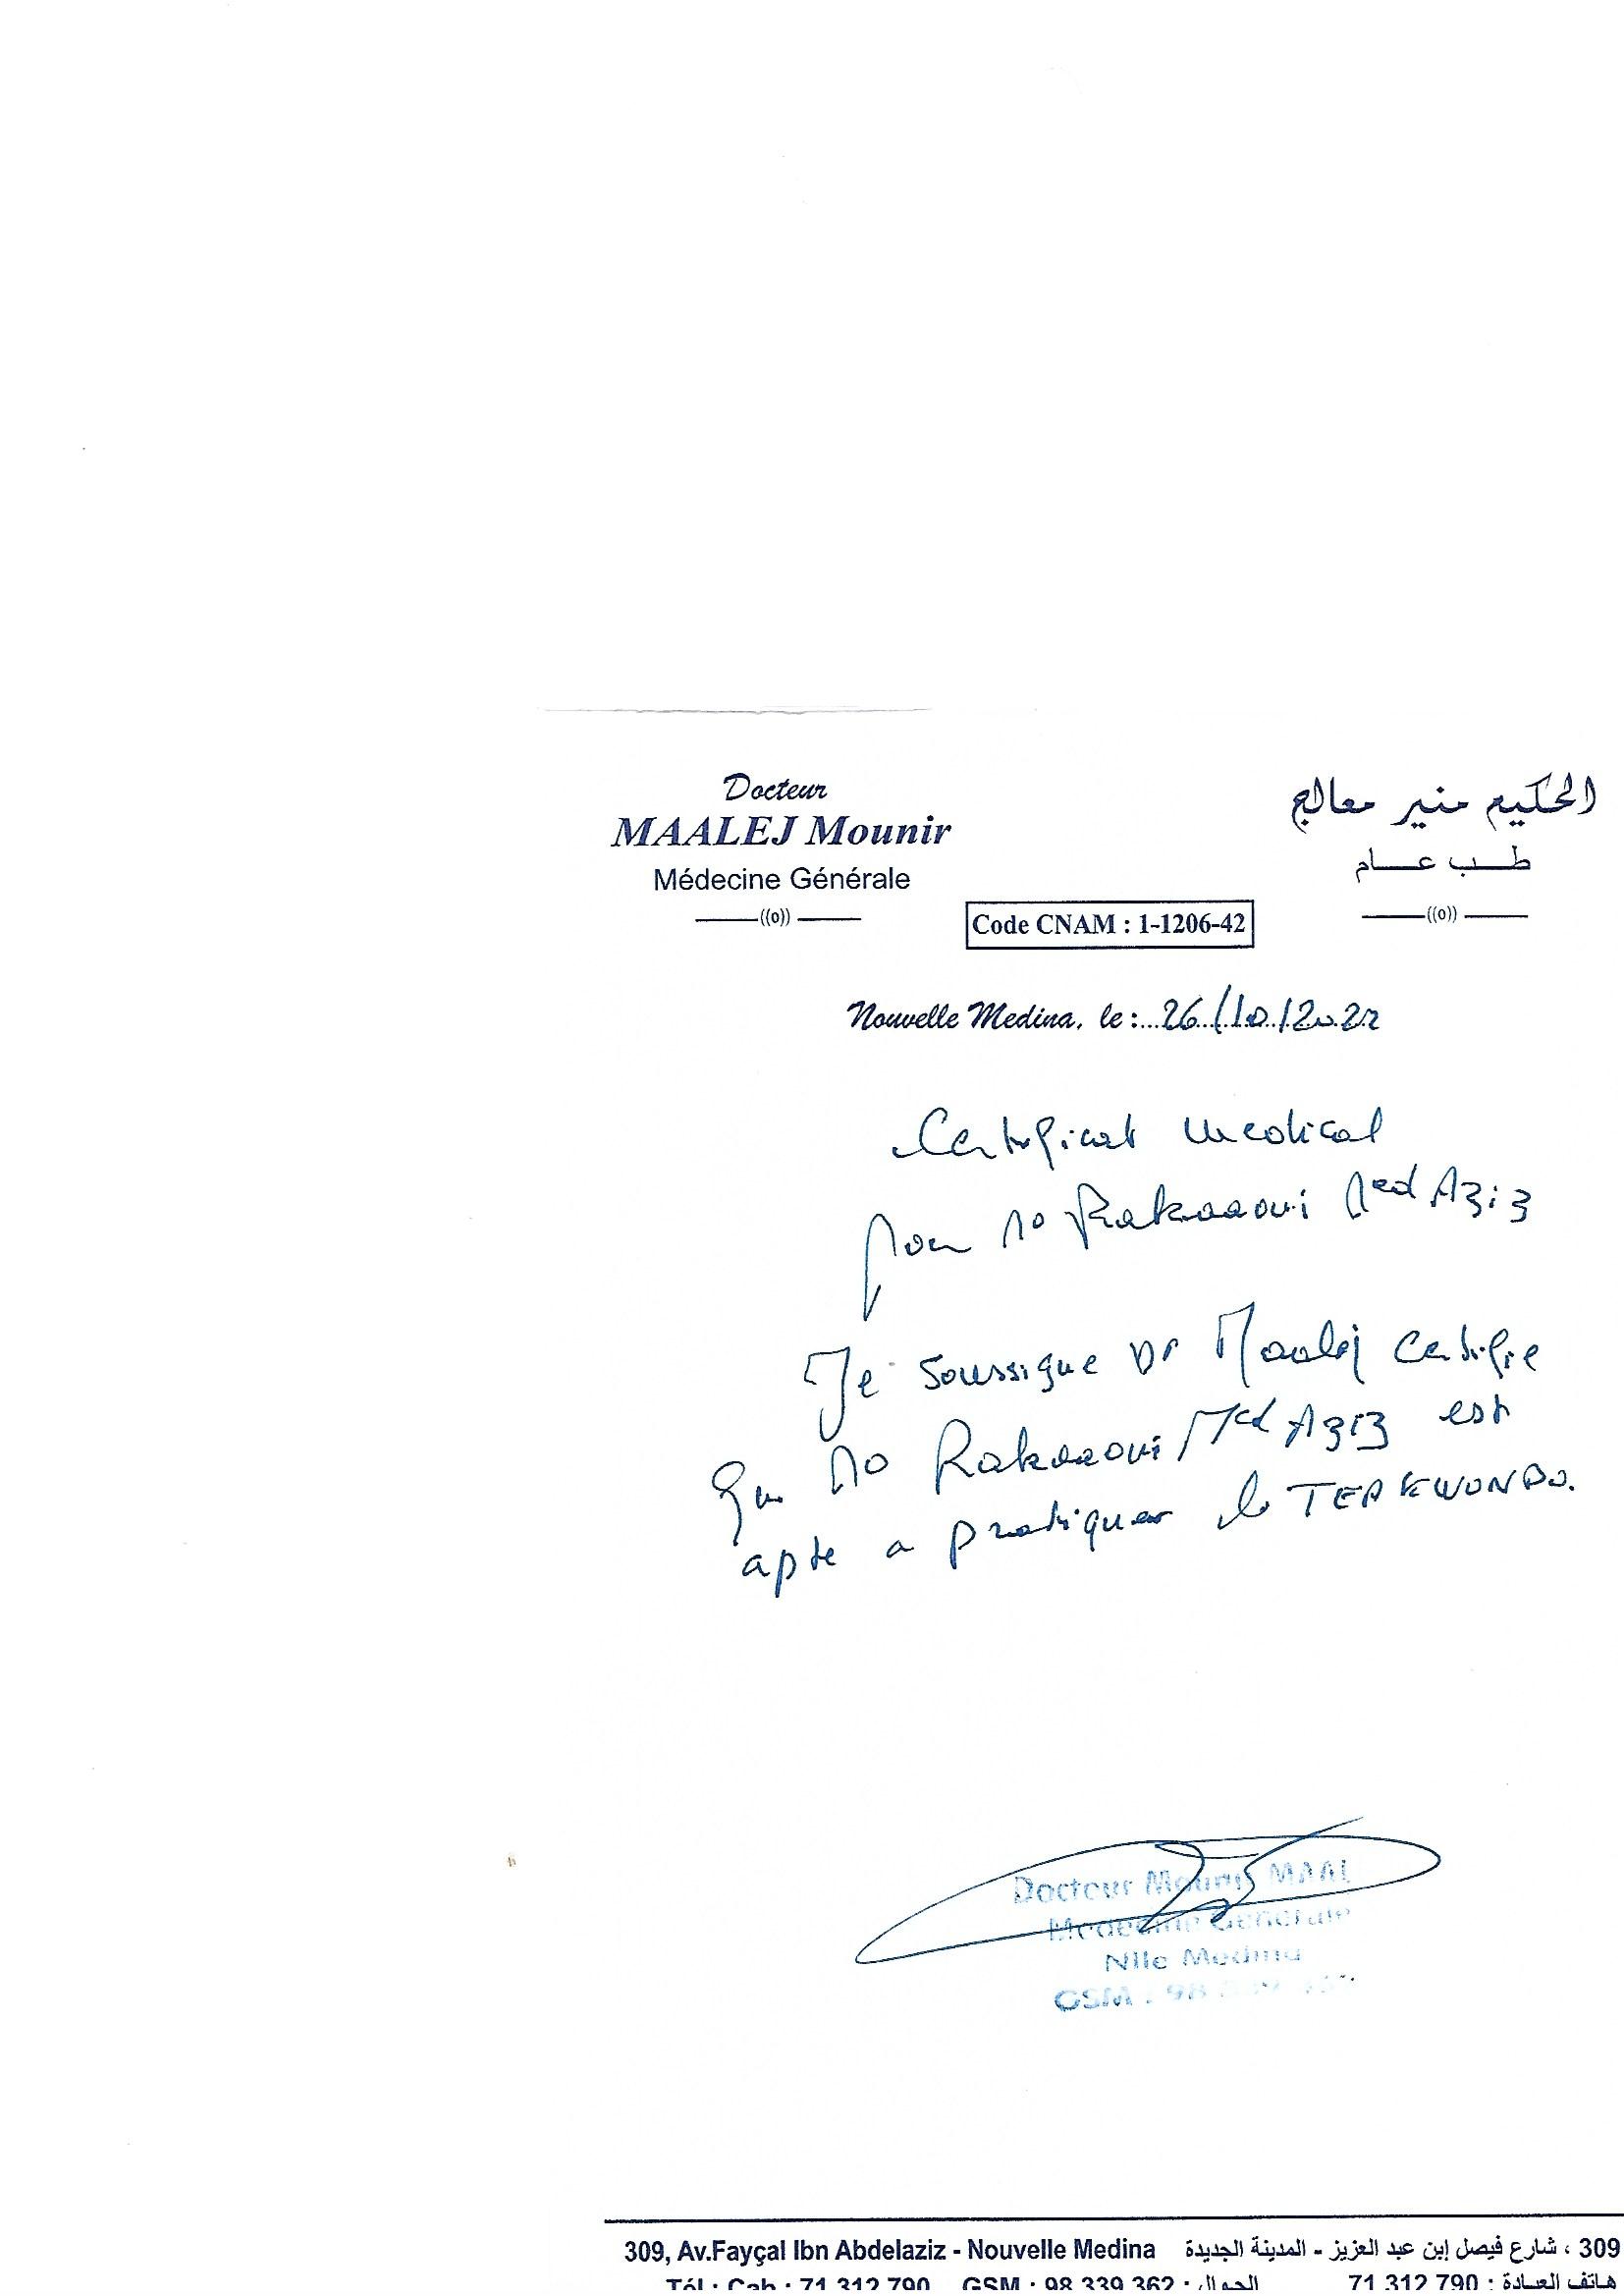 Docteur
MAALEJ Mounir
Médecine Générale
((o))
الحكيم منير معالج
طب عام
((o))
Code CNAM : 1-1206-42
Nouvelle Medina, le : 26/10/2022
Certificat medical
pour Mr Rakraoui Med Aziz
Je soussigne Dr Maalej certifie
que Mr Rakraoui Med Aziz est
apte a pratiquer le TEAKWONDO.
Docteur Mounir MAAL
Medecine Generale
Nlle Medina
GSM : 98
309, Av.Fayçal Ibn Abdelaziz - Nouvelle Medina 309 ، شارع فيصل إبن عبد العزيز - المدينة الجديدة
Tél : Cab : 71 312 790 GSM : 98 339 362 : الجوال هاتف العيادة : 71 312 790